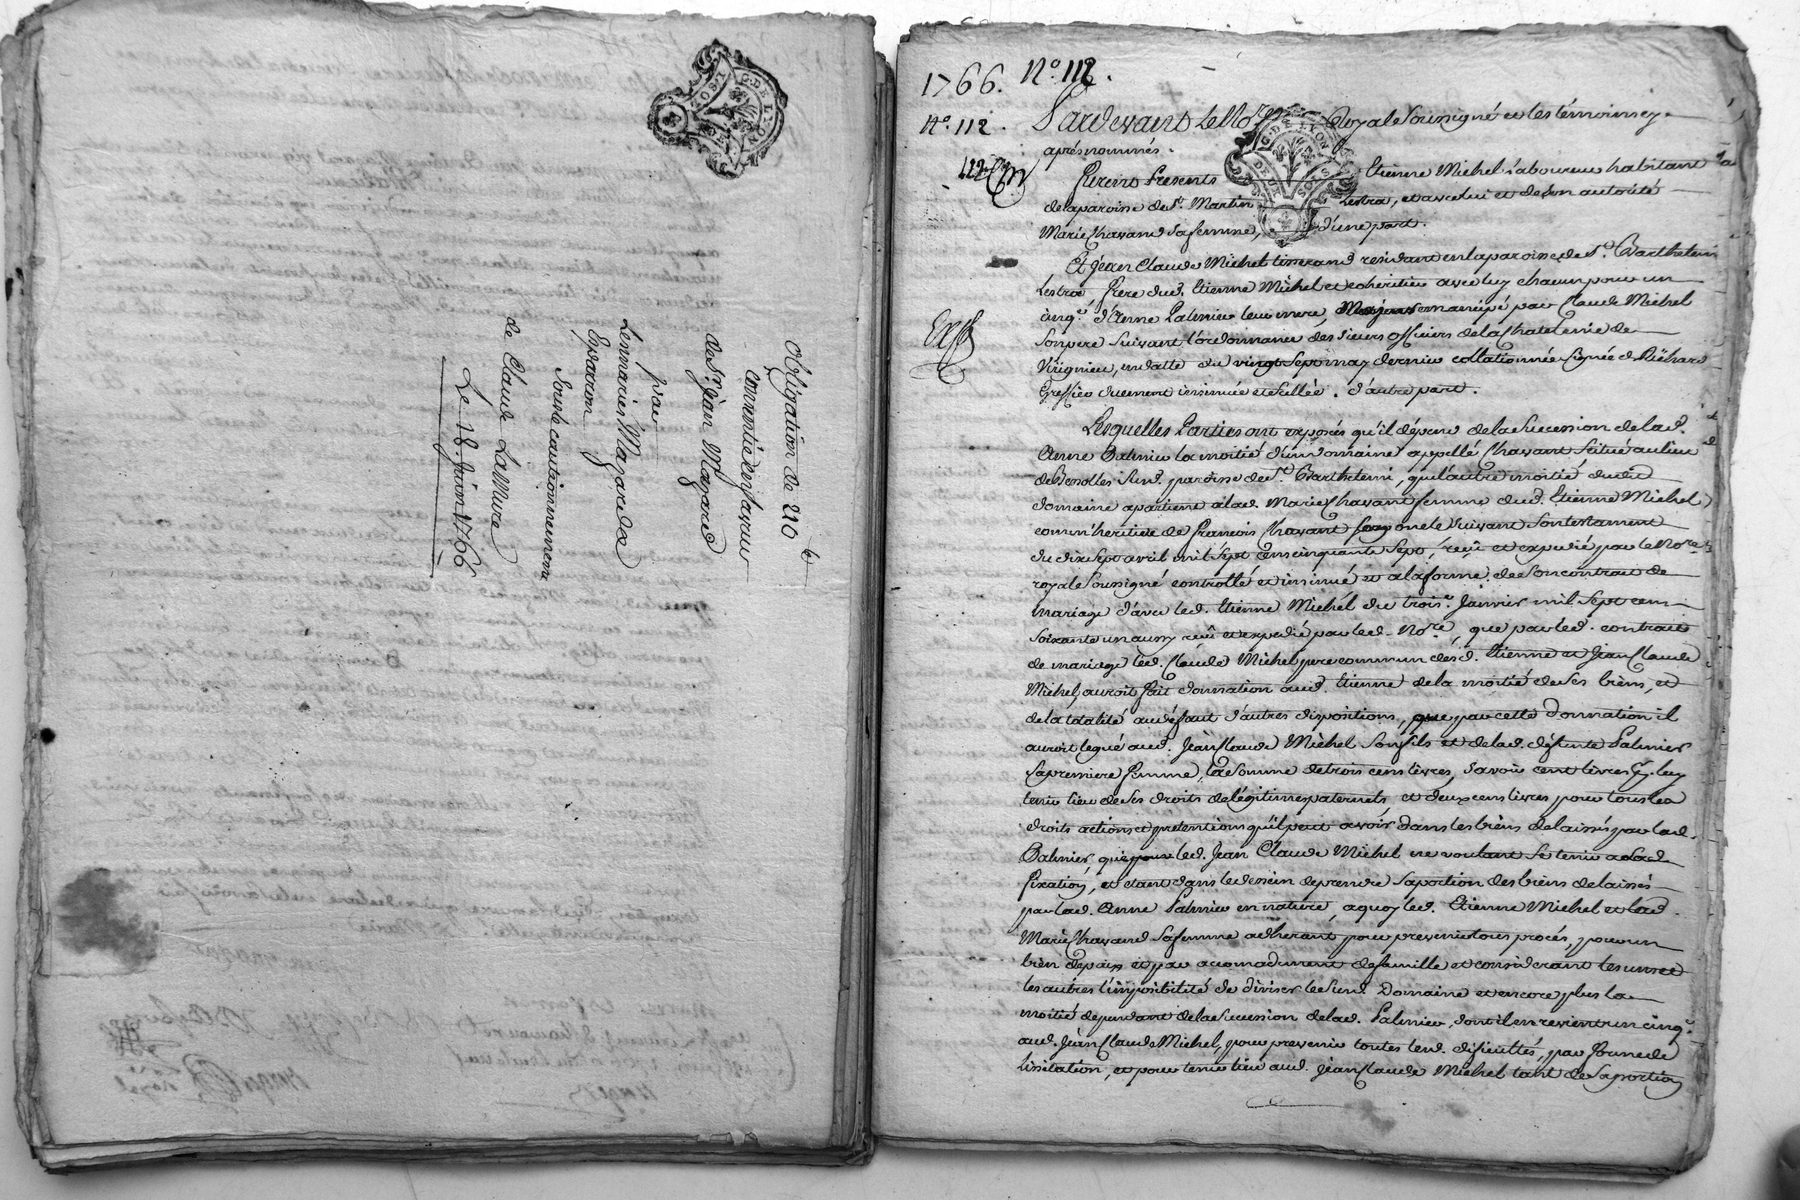 Obligation de 210 ₶
consentie en faveur
de sr. Jean Mazard
par
Les maries Mazard et
Esparron
Sous le cautionnement
de Claude Lassure
Le 18. Juin 1766
G. DE LYON
1766. No. 112.
No. 112.
Pardevant le Nore Royal Soussigné et les témoins cy
aprés nommés.
Furent Presents Etienne Michel Laboureur habitant
de la paroisse de St. Martin Lestra, et avec lui et de son autorité
Marie Chavand sa femme, d'une part.
G. DE LYON
DEUX SOLS
Et Jean Claude Michel tisserand residant en la paroisse de St. Barthelemi
Lestra, frere dud. Etienne Michel et coheritier avec luy chacun pour un
cinqe. d'Anne Palmier leur mere, emancipé par Claude Michel
Son pere Suivant l'ordonnance des Sieurs officiers de la Chatelenie de
Virignieu, en datte du vingt Sept may dernier collationnée Signée Richard
Greffier duement insinuée et Sellée. d'autre part.
Lesquelles Parties ont exposés qu'il dépend de la Succession de lad.
Anne Balmier la moitié d'un domaine appellé Chavant Scitué au lieu
de Bessolles Susd. paroisse de St. Barthelemi, que l'autre moitié dudit
domaine apartient a lad. Marie Chavant femme dud. Etienne Michel
comm'heritiere de Francois Chavant son oncle Suivant Son testament
du dix Sept avril mil Sept cens cinquante Sept, reçû et expedié par le Nore
royal Soussigné controllé et insinué et a la forme de Son contrat de
mariage d'avec led. Etienne Michel du troise. Janvier mil Sept cens
Soixante un aussy reçû et expedié par led. Nore, que par led. contrat
de mariage led. Claude Michel pere commun desd. Etienne et Jean Claude
Michel, auroit fait donnation aud. Etienne de la moitié de Ses biens, et
de la totalité au défaut d'autres dispositions, que par cette Donnation il
auroit legué aud. Jean Claude Michel Son fils et de lad. défunte Palmier
Sa premiere femme, la Somme de trois cens livres, Savoir cent livres pr. luy
tenir lieu de Ses droits de légitimes paternels et deux cens livres pour tous les
droits actions et pretentions qu'il peut avoir dans les biens delaissés par lad.
Balmier, que led. Jean Claude Michel ne voulant Se tenir a lad.
fixation, et etant dans le dessein de prendre Sa portion des biens delaissés
par lad. Anne Palmier en nature, a quoy led. Etienne Michel et lad.
Marie Chavand Sa femme adherant pour prevenir tous procés, pour un
bien de paix et par accomodement de famille et considerant les uns et
les autres l'impossibilité de diviser led Susd. Domaine et encore plus la
moitié dependant de la Succession de lad. Palmier, dont il en revient un cinqe.
aud. Jean Claude Michel, pour prevenir toutes lesd. dificultés, par forme de
licitation, et pour tenir lieu aud. Jean Claude Michel tant de Sa portion